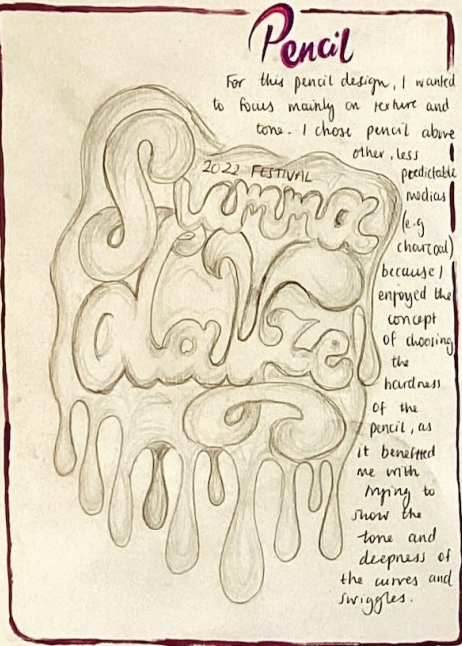 Pencil
For this pencil design, I wanted
to focus mainly on texture and
tone. I chose pencil above
other, less
predictable
medias
(e.g
charcoal)
because I
enjoyed the
concept
of choosing
the
hardness
of the
pencil, as
it benefitted
me with
trying to
show the
tone and
deepness of
the curves and
swiggles.
2022 FESTIVAL
Summa